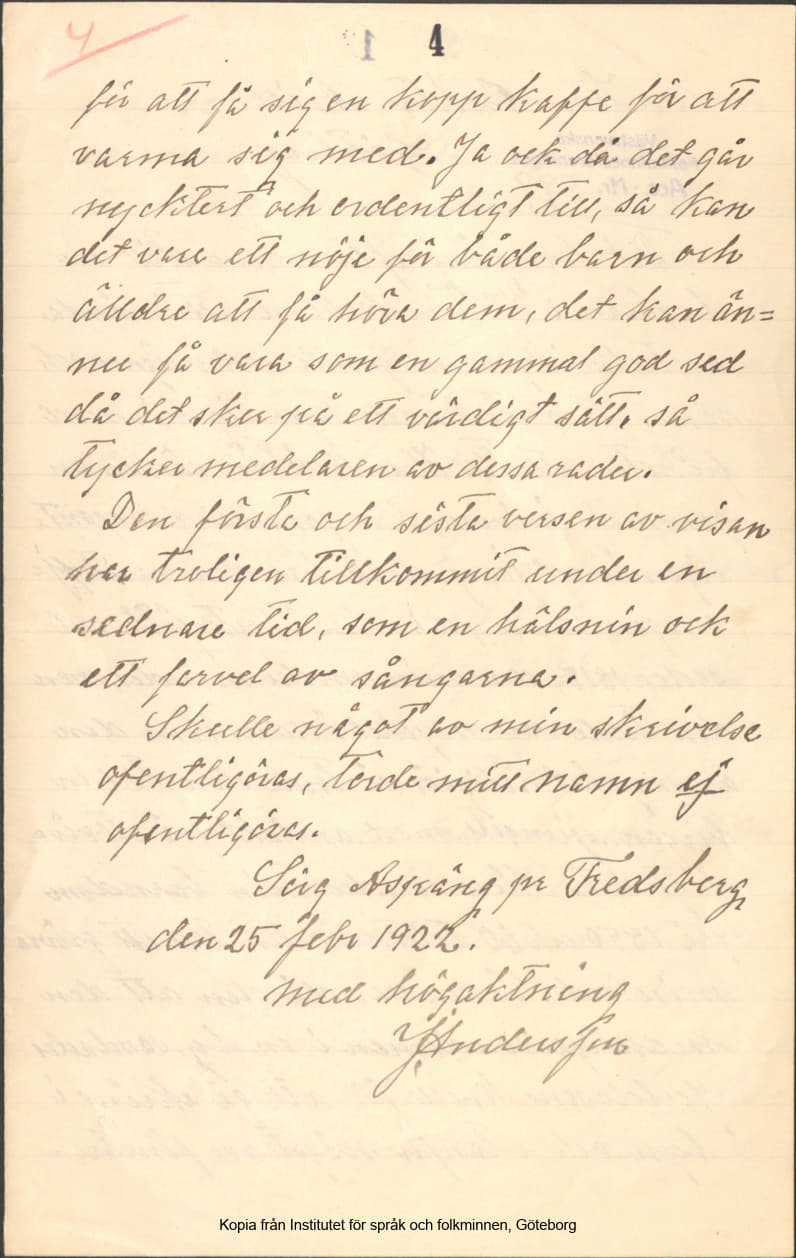 4
4
för att få sig en kopp kaffe för att
varma sig med. Ja ock då det går
nycktert och ordentligt till, så kan
det vara ett nöje för både barn och
älldre att få höra dem, det kan än=
nu få vara som en gammal god sed
då det sker på ett värdigt sätt, så
tycker medelaren av dessa rader.
Den första och sista versen av visan
har troligen tillkommit under en
sednare tid, som en hälsnin ock
ett farvel av sångarna.
Skulle något av min skrivelse
ofentligöras, torde mitt namn ej
ofentligöras.
Sörg Aspäng pr Fredsberg
den 25 febr 1922.
med högaktning
J Andersson
Kopia från Institutet för språk och folkminnen, Göteborg